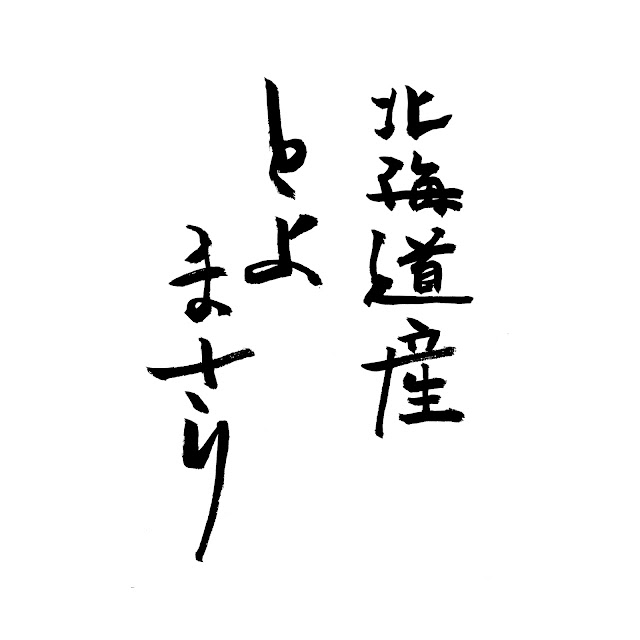 北海道産
とよ
まさり